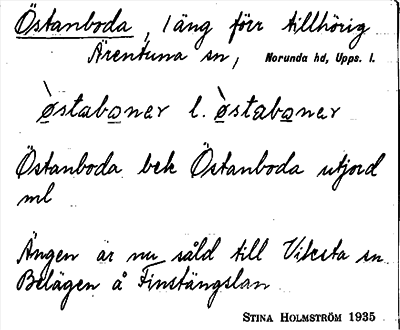 Östanboda, 1 äng förr tillhörig
Ärentuna sn, Norunda hd, Upps. l.
`østabo̲ner l. `østabo̲ner
Östanboda bek Östanboda utjord
ml
Ängen är nu såld till Viksta sn
Belägen å Finstängslan
STINA HOLMSTRÖM 1935